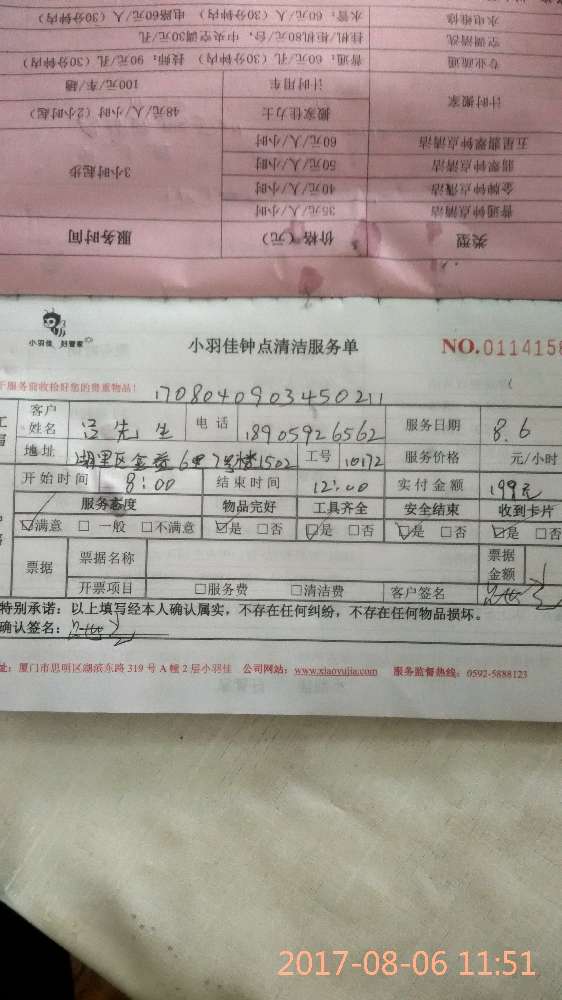 水电维修 水管：60元/人（30分钟内） 电路60元/人（30分钟内）
空调清洗 挂机/柜机80元/台，中央空调30元/孔
专业疏通 普通：60元/孔（30分钟内） 技师：90元/孔（30分钟内）
计时搬家 计时用车 100元/车/趟
搬家佳力士 48元/人/小时（2小时起）
五星翡翠钟点清洁 60元/人/小时 3小时起步
翡翠钟点清洁 50元/人/小时
金牌钟点清洁 40元/人/小时
普通钟点清洁 35元/人/小时
类型 价格（元） 服务时间
小羽佳 好管家
小羽佳钟点清洁服务单
NO.0114158
于服务前收检好您的贵重物品！
1708040903450211
客户姓名 先生 电话 18905926562 服务日期 8.6
地址 湖里区金 1502 工号 10172 服务价格 元/小时
开始时间 8:00 结束时间 12:00 实付金额 199元
服务态度 物品完好 工具齐全 安全结束 收到卡片
☑满意 □一般 □不满意 ☑是 □否 ☑是 □否 ☑是 □否 ☑是 □否
票据 票据名称 票据金额
开票项目 □服务费 □清洁费 客户签名
特别承诺：以上填写经本人确认属实，不存在任何纠纷，不存在任何物品损坏。
确认签名：
址：厦门市思明区湖滨东路319号A幢2层小羽佳 公司网站：www.xiaoyujia.com 服务监督热线：0592-5888123
2017-08-06 11:51